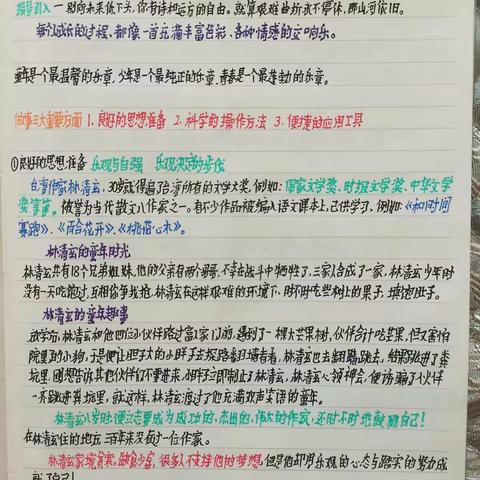 指导引入 一别向未来低下头,你有诗和远方的自由。就算艰难曲折永不停休,那山河依旧。
每个成长的过程,都像一首充满丰富色彩、各种情感的交响乐。
童年是个最温馨的乐章,少年是一个最纯正的乐章,青春是一个最莲勃的乐章。
做事三大重要方面 1.良好的思想准备 2.科学的操作方法 3.便捷的应用工具
①良好的思想准备 乐观与自强 乐观决定的步伐
台湾作家林清玄,30岁就得遍了台湾所有的文学大奖,例如:国家文学奖、时报文学奖、中华文学
奖等等。被誉为当代散文八作家之一。有不少作品被编入语文课本上,已供学习。例如:《和时间
赛跑》、《百合花开》、《桃花心木》。
林清玄的童年时光
林清玄共有18个兄弟姐妹,他的父亲有两个哥哥,不幸在战斗中牺牲了,三家人合成了一家,林清玄少年时
没有一天吃饱过,互相你争我抢,林清玄在这样艰难的环境下,时不时吃些树上的果子,填饱肚子。
林清玄的童年趣事
放学后,林清玄和他四位小伙伴路过富人家门前,遇到了一棵大芒果树,伙伴合计吃芒果,但又害怕
院里的小狗,于是便让胆子大的小胖子去探路翻墙看看,林清玄也去翻墙跳去,结果跳进了粪
坑里,刚想告诉其他伙伴们不要进来,小胖子立即制止了林清玄,林清玄心领神会,便诱骗了伙伴
一齐跳进粪坑里,就这样,林清玄渡过了他充满欢声笑语的童年。
林清玄八岁时便立志要成为成功的,杰出的,伟大的作家,还时不时地鼓励自己!
在林清玄住的地方 三百年来没有过一位作家。
林清玄家境贫寒,缺食少金,很多人不支持他的梦想,但是他却用乐观的心态与踏实的努力成